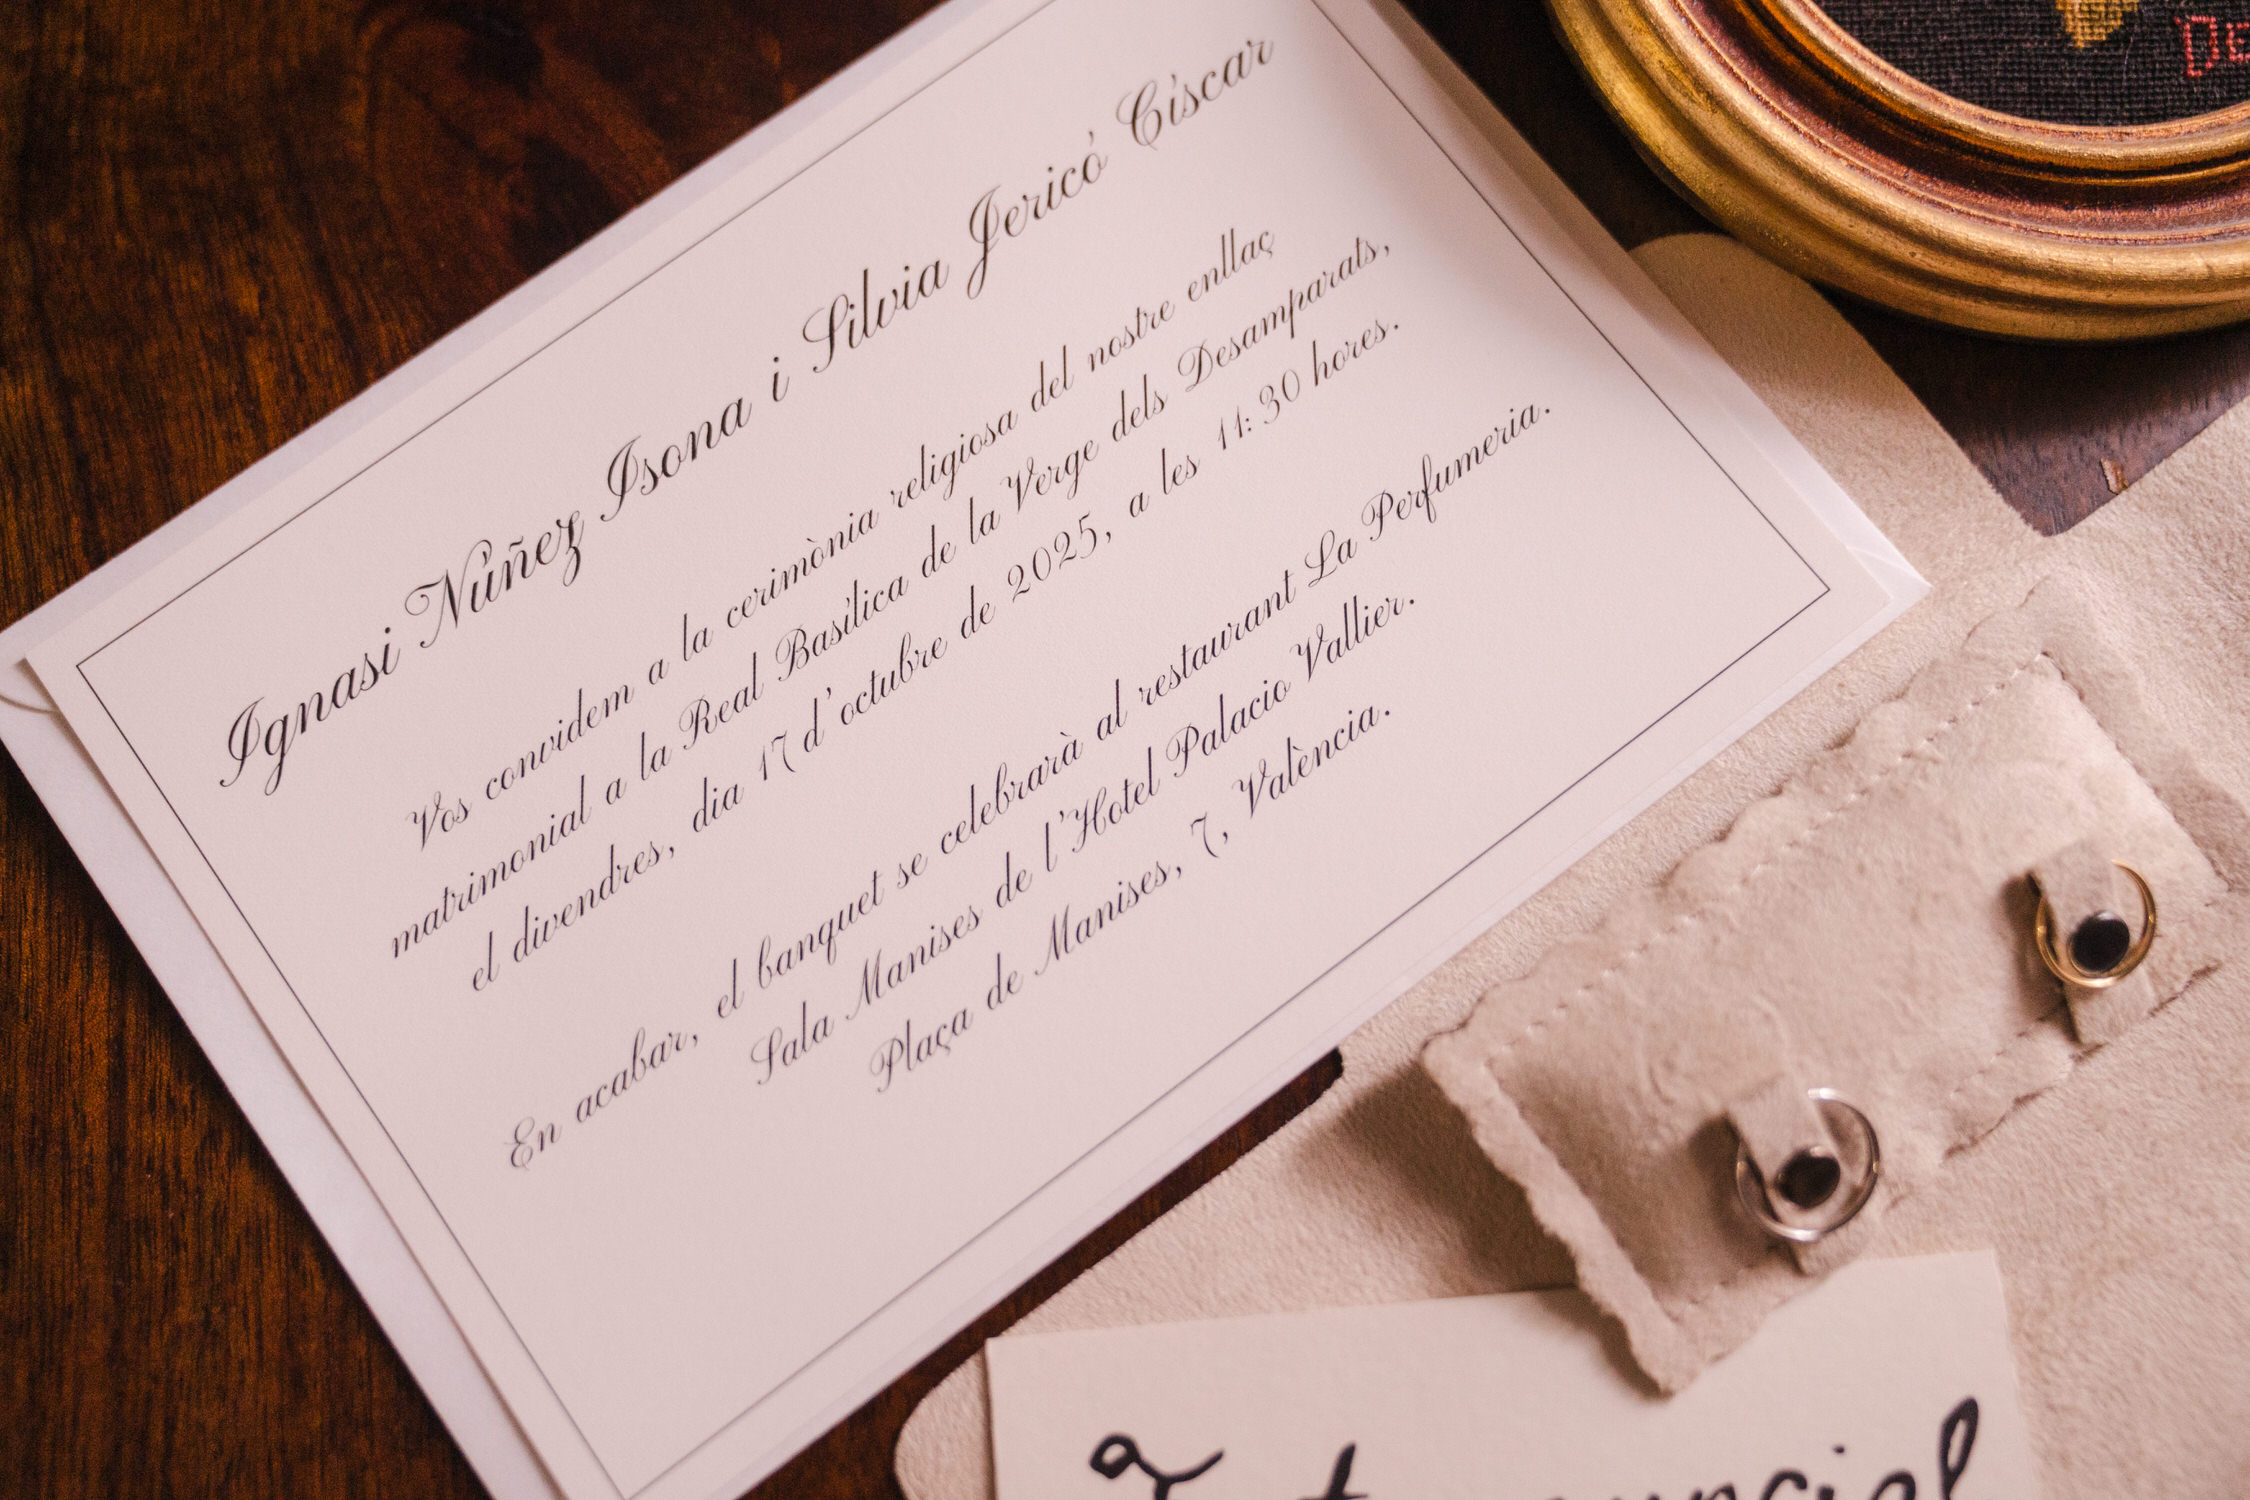 Ignasi Núñez Isona i Silvia Jericó Císcar
Vos convidem a la cerimònia religiosa del nostre enllaç
matrimonial a la Real Basílica de la Verge dels Desamparats,
el divendres, dia 17 d'octubre de 2025, a les 11:30 hores.
En acabar, el banquet se celebrarà al restaurant La Perfumeria.
Sala Manises de l'Hotel Palacio Vallier.
Plaça de Manises, 7, València.